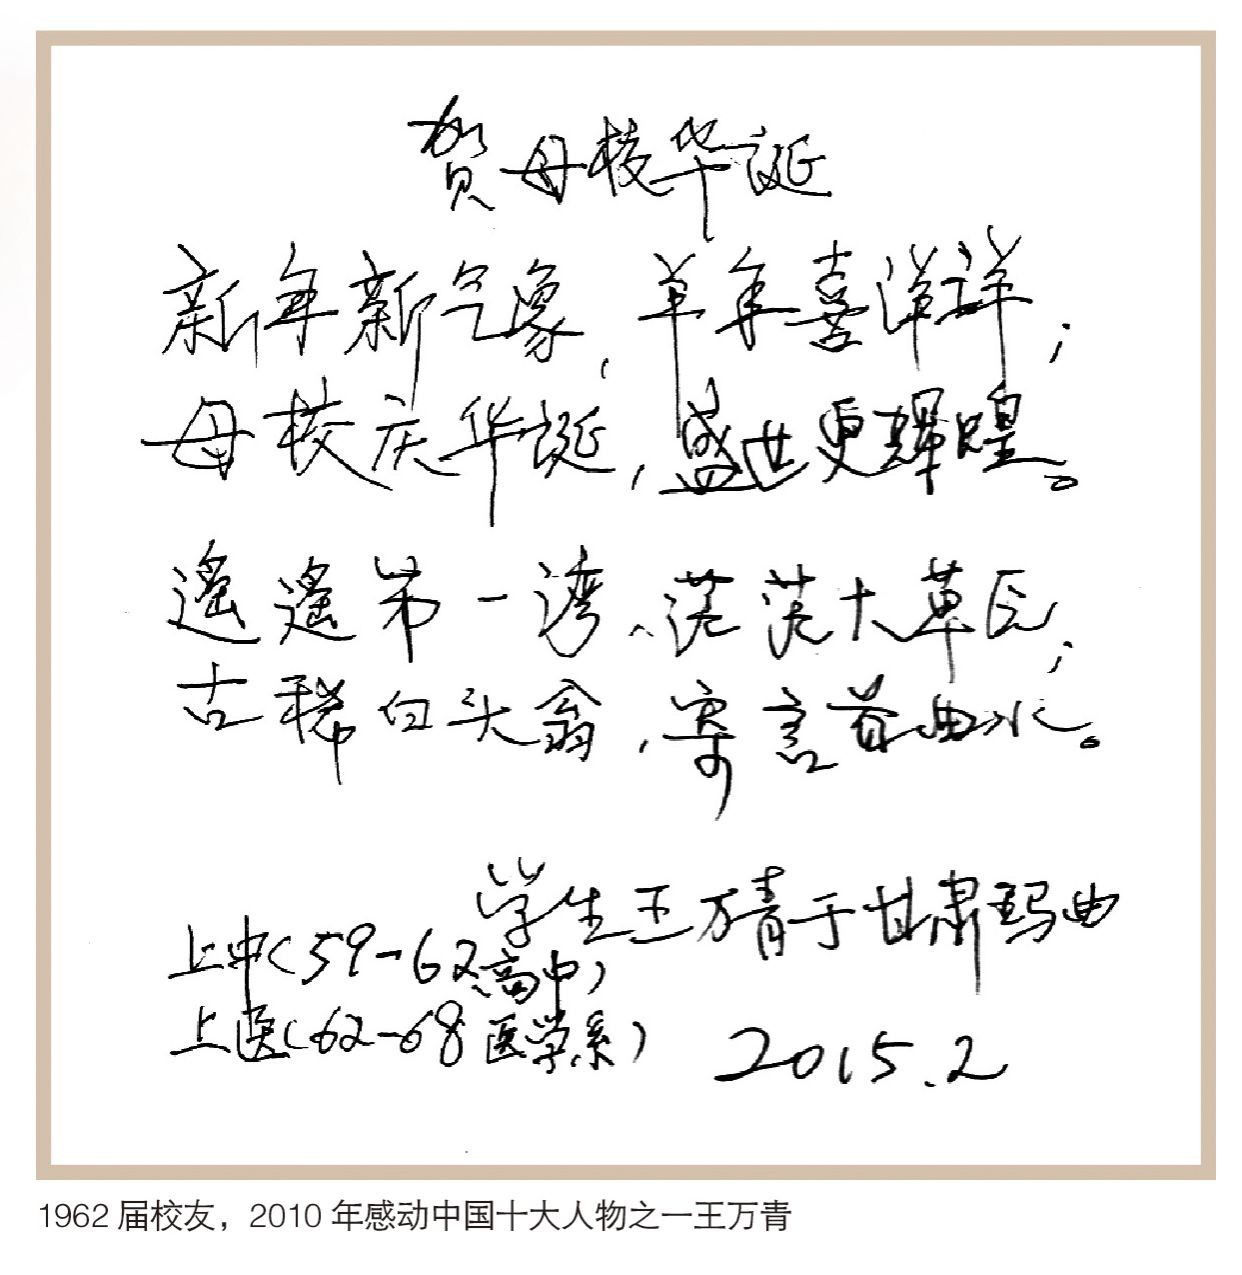 贺母校华诞
新年新气象，羊年喜洋洋；
母校庆华诞，盛世更辉煌。
遥遥第一湾、茫茫大草原；
古稀白头翁，寄言首曲水。
学生王万青于甘肃玛曲
上中（59-62高中）
上医（62-68医学系）
2015.2
1962届校友，2010年感动中国十大人物之一王万青